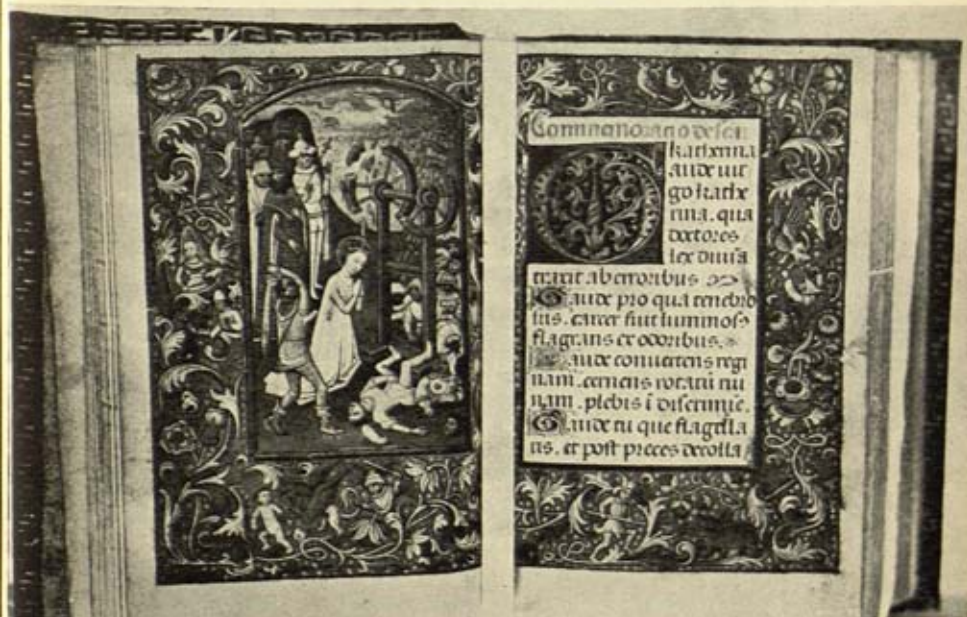 Commemoracio de sca
katherina
aude vir
go kathe
rina. qua
doctores
lex diuīa
traxit ab erroribus
Gaude pro qua tenebro
sus. carcer fuit luminosꝰ
flagrans et odoribus.
Gaude conuertens regi
nam. cernens rotarū rui
nam. plebis ī discrimīe.
Gaude tu que flagella
tis. et post preces decolla